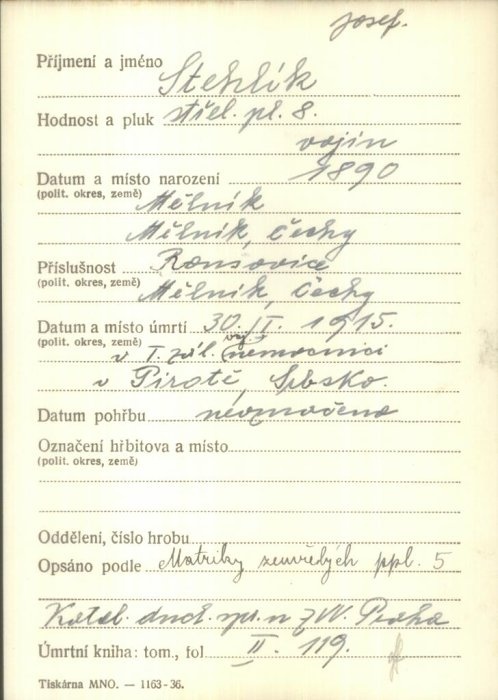 Josef.
Příjmení a jméno Stehlík
Hodnost a pluk střel. pl. 8.
vojín
Datum a místo narození 1890
(polit. okres, země) Mělník
Mělník, Čechy
Příslušnost
(polit. okres, země) Mělník, Čechy
Datum a místo úmrtí 30. I. 1915.
(polit. okres, země) v I. zál. voj. nemocnici
v Pirotě, Srbsko.
Datum pohřbu neoznačeno
Označení hřbitova a místo
(polit. okres, země)
Oddělení, číslo hrobu
Opsáno podle Matriky zemřelých ppl. 5
Katol. duch. spr. n ZW. Praha
Úmrtní kniha: tom., fol II. 119.
Tiskárna MNO. — 1163-36.